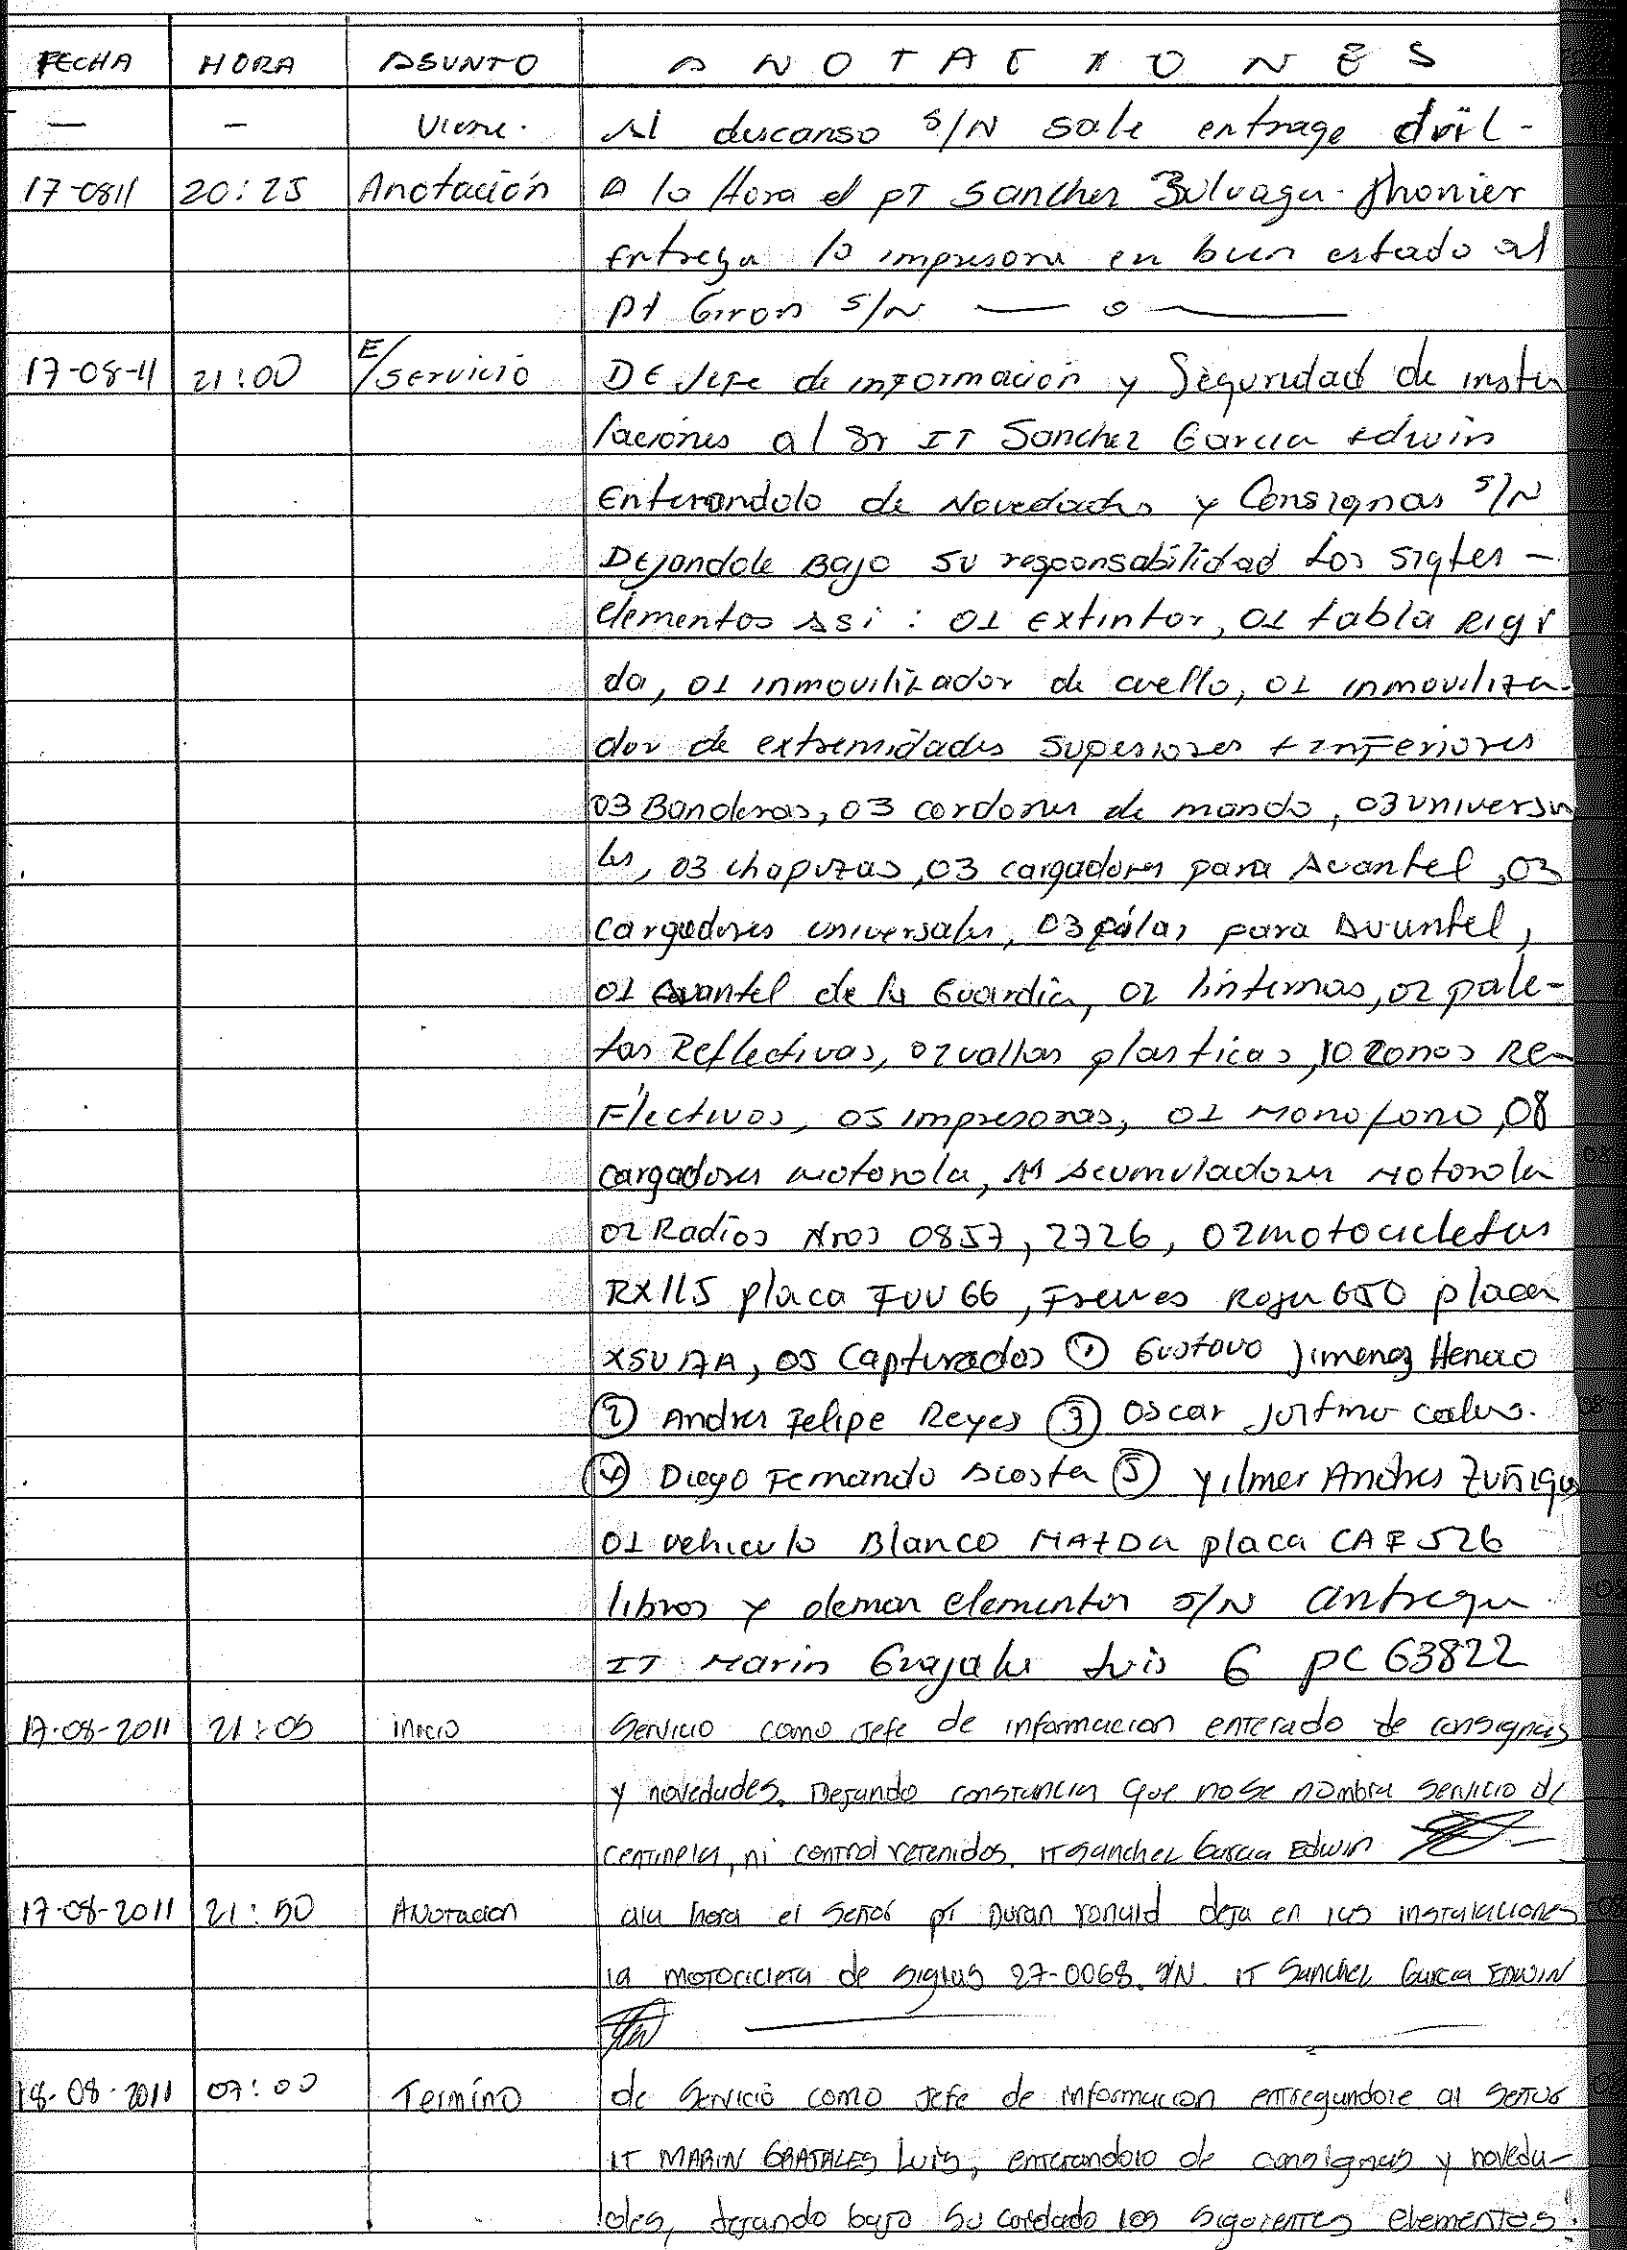 FECHA HORA ASUNTO ANOTACIONES
— — Viene. Al descanso S/N sale entrage civil -
17-0811 20:25 Anotación A la Hora el PT Sanchez Jhonier
Entrega la impresora en buen estado al
Pt Giron S/N — o —
17-08-11 21:00 E/Servicio DE Jefe de informacion y Seguridad de insta
laciones al Sr IT Sanchez Garcia Edwin
Enterandolo de Novedades y Consignas S/N
Dejandole Bajo su responsabilidad Los sigtes -
elementos Asi : 01 extintor, 01 tabla Rigi
da, 01 inmovilizador de cuello, 01 inmoviliza-
dor de extremidades superiores + inferiores
03 Banderas, 03 cordones de mando, 03 universa
les, 03 chapuzas, 03 cargadores para Avantel, 03
cargadores universales, 03 pilas para Avantel,
01 Avantel de la Guardia, 02 linternas, 02 pale-
tas Reflectivas, 02 vallas plasticas, 10 conos Re-
Flectivos, 05 impresoras, 01 Monofono, 08
cargadores motorola, 11 Acumuladores Motorola
02 Radios Nros 0857, 2726, 02 motocicletas
RX115 placa FUV 66, Roja 650 placa
XSU 17A, 05 Capturados ① Gustavo Jimenez Henao
② Andres Felipe Reyes ③ Oscar
④ Diego Fernando Acosta ⑤ Yilmer Andres Zuñiga
01 vehiculo Blanco MAZDA placa CAF 526
libros y demas elementos S/N entrega
IT Marin Grajales Luis G PC 63822
17-08-2011 21:05 inicio Servicio como Jefe de informacion enterado de consignas
y novedades. Dejando constancia Que no se nombra servicio de
centinela, ni control retenidos. IT Sanchez Garcia Edwin
17-08-2011 21:50 Anotacion ala hora el señor pt Duran Ronald deja en las instalaciones
la motocicleta de siglas 27-0068. S/N. IT Sanchez Garcia EDWIN
18-08-2011 07:00 Termino de Servicio como Jefe de informacion entregandole al señor
IT MARIN GRAJALES Luis, enterandolo de consignas y noveda-
des, dejando bajo su cuidado los siguientes elementos: